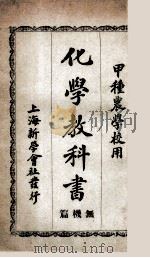 甲種農學校用
化學教科書
無機篇
上海新學會社發行
www.mtoou.info